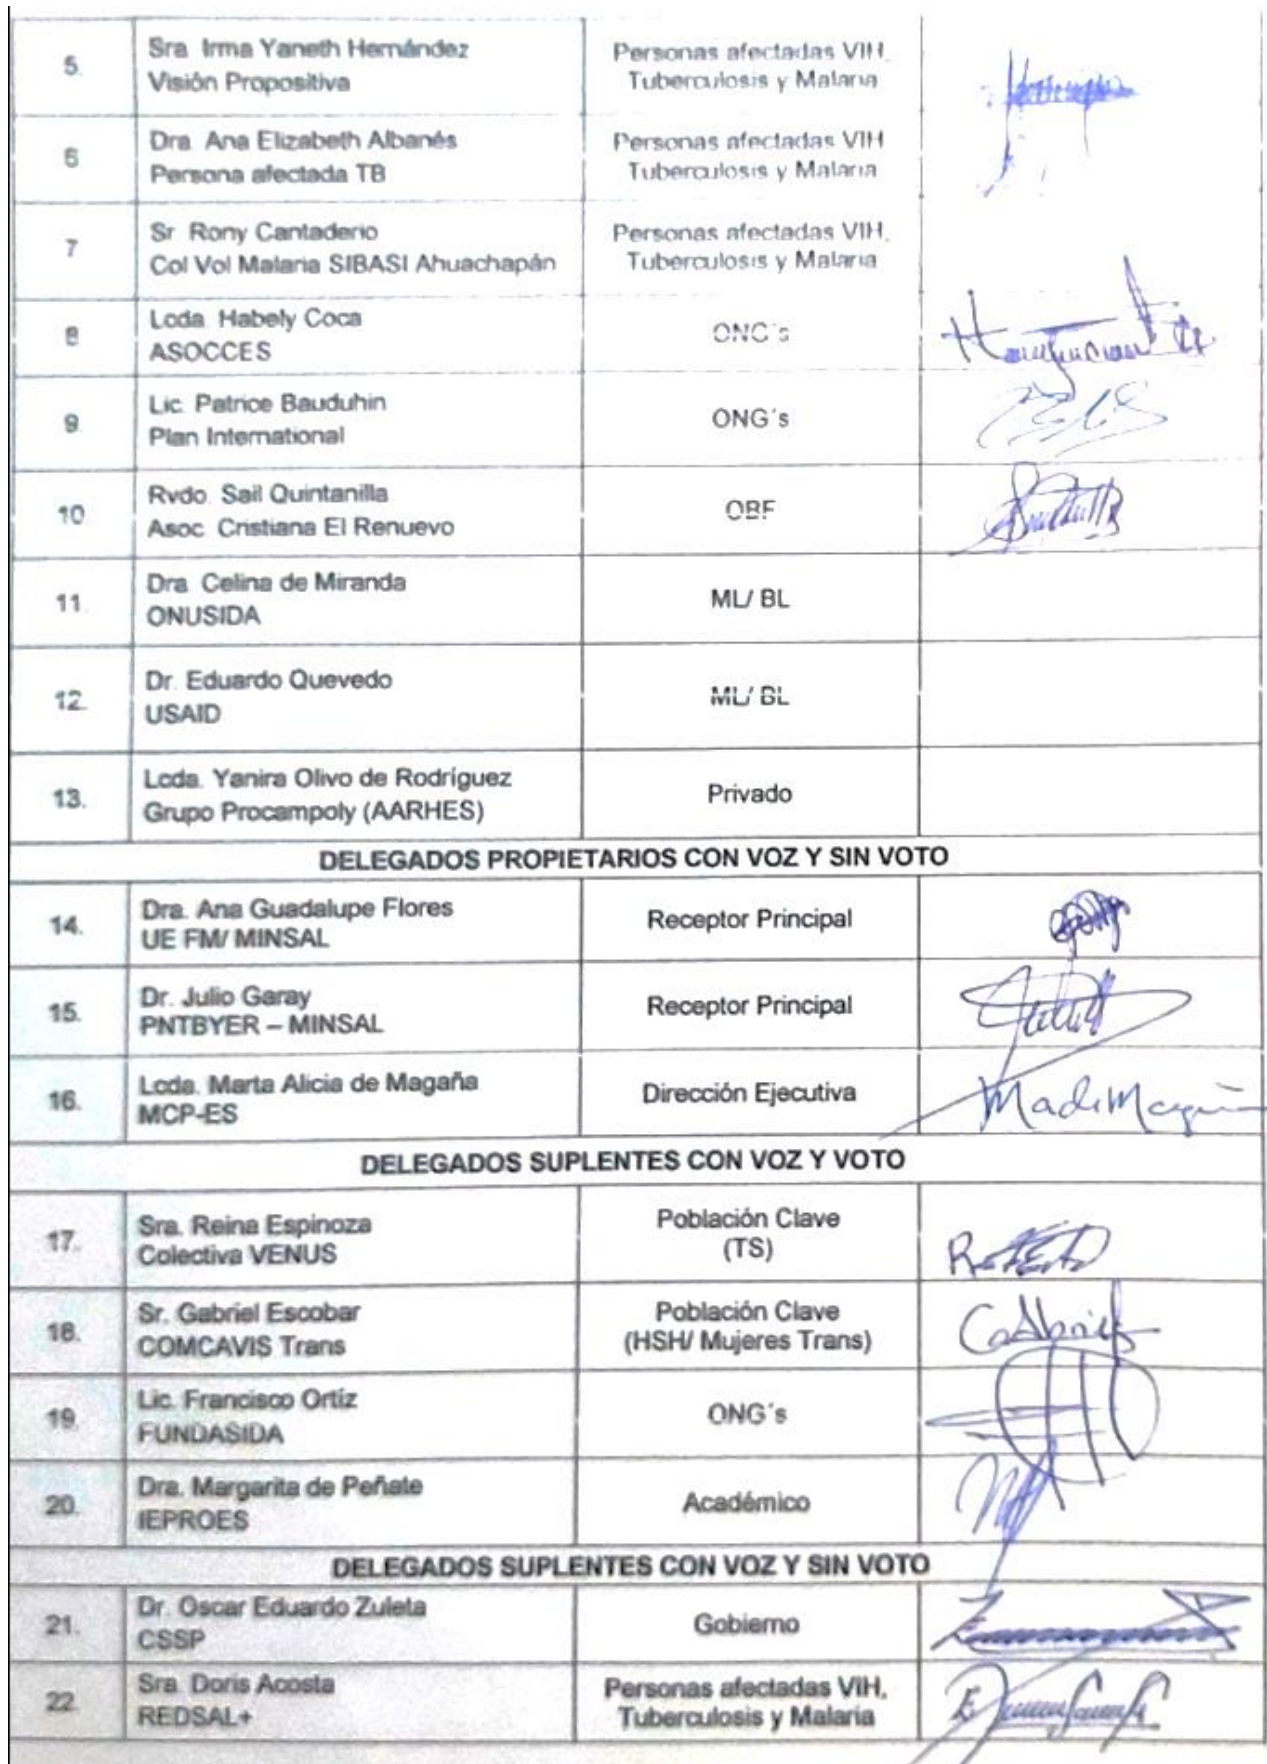 5.
Sra. Irma Yaneth Hernández
Visión Propositiva
Personas afectadas VIH,
Tuberculosis y Malaria
6
Dra. Ana Elizabeth Albanés
Persona afectada TB
Personas afectadas VIH
Tuberculosis y Malaria
7
Sr. Rony Cantaderio
Col Vol Malaria SIBASI Ahuachapán
Personas afectadas VIH,
Tuberculosis y Malaria
8
Lcda. Habely Coca
ASOCCES
ONG´s
9
Lic. Patrice Bauduhin
Plan International
ONG´s
10
Rvdo. Sail Quintanilla
Asoc. Cristiana El Renuevo
OBF
11.
Dra. Celina de Miranda
ONUSIDA
ML/ BL
12.
Dr. Eduardo Quevedo
USAID
ML/ BL
13.
Lcda. Yanira Olivo de Rodríguez
Grupo Procampoly (AARHES)
Privado
DELEGADOS PROPIETARIOS CON VOZ Y SIN VOTO
14.
Dra. Ana Guadalupe Flores
UE FM/ MINSAL
Receptor Principal
15.
Dr. Julio Garay
PNTBYER – MINSAL
Receptor Principal
16.
Lcda. Marta Alicia de Magaña
MCP-ES
Dirección Ejecutiva
DELEGADOS SUPLENTES CON VOZ Y VOTO
17.
Sra. Reina Espinoza
Colectiva VENUS
Población Clave
(TS)
18.
Sr. Gabriel Escobar
COMCAVIS Trans
Población Clave
(HSH/ Mujeres Trans)
19.
Lic. Francisco Ortíz
FUNDASIDA
ONG´s
20.
Dra. Margarita de Peñate
IEPROES
Académico
DELEGADOS SUPLENTES CON VOZ Y SIN VOTO
21.
Dr. Oscar Eduardo Zuleta
CSSP
Gobierno
22.
Sra. Doris Acosta
REDSAL+
Personas afectadas VIH,
Tuberculosis y Malaria